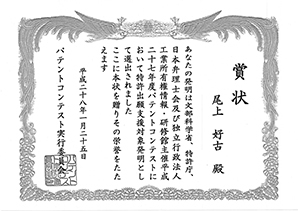 賞状
尾上 好古 殿
あなたの発明は文部科学省、特許庁、
日本弁理士会及び独立行政法人
工業所有権情報・研修館主催平成
二十七年度パテントコンテストに
おいて特許出願支援対象発明とし
て選出されました
ここに本状を贈りその栄誉をたた
えます
平成二十八年一月二十五日
パテントコンテスト実行委員会